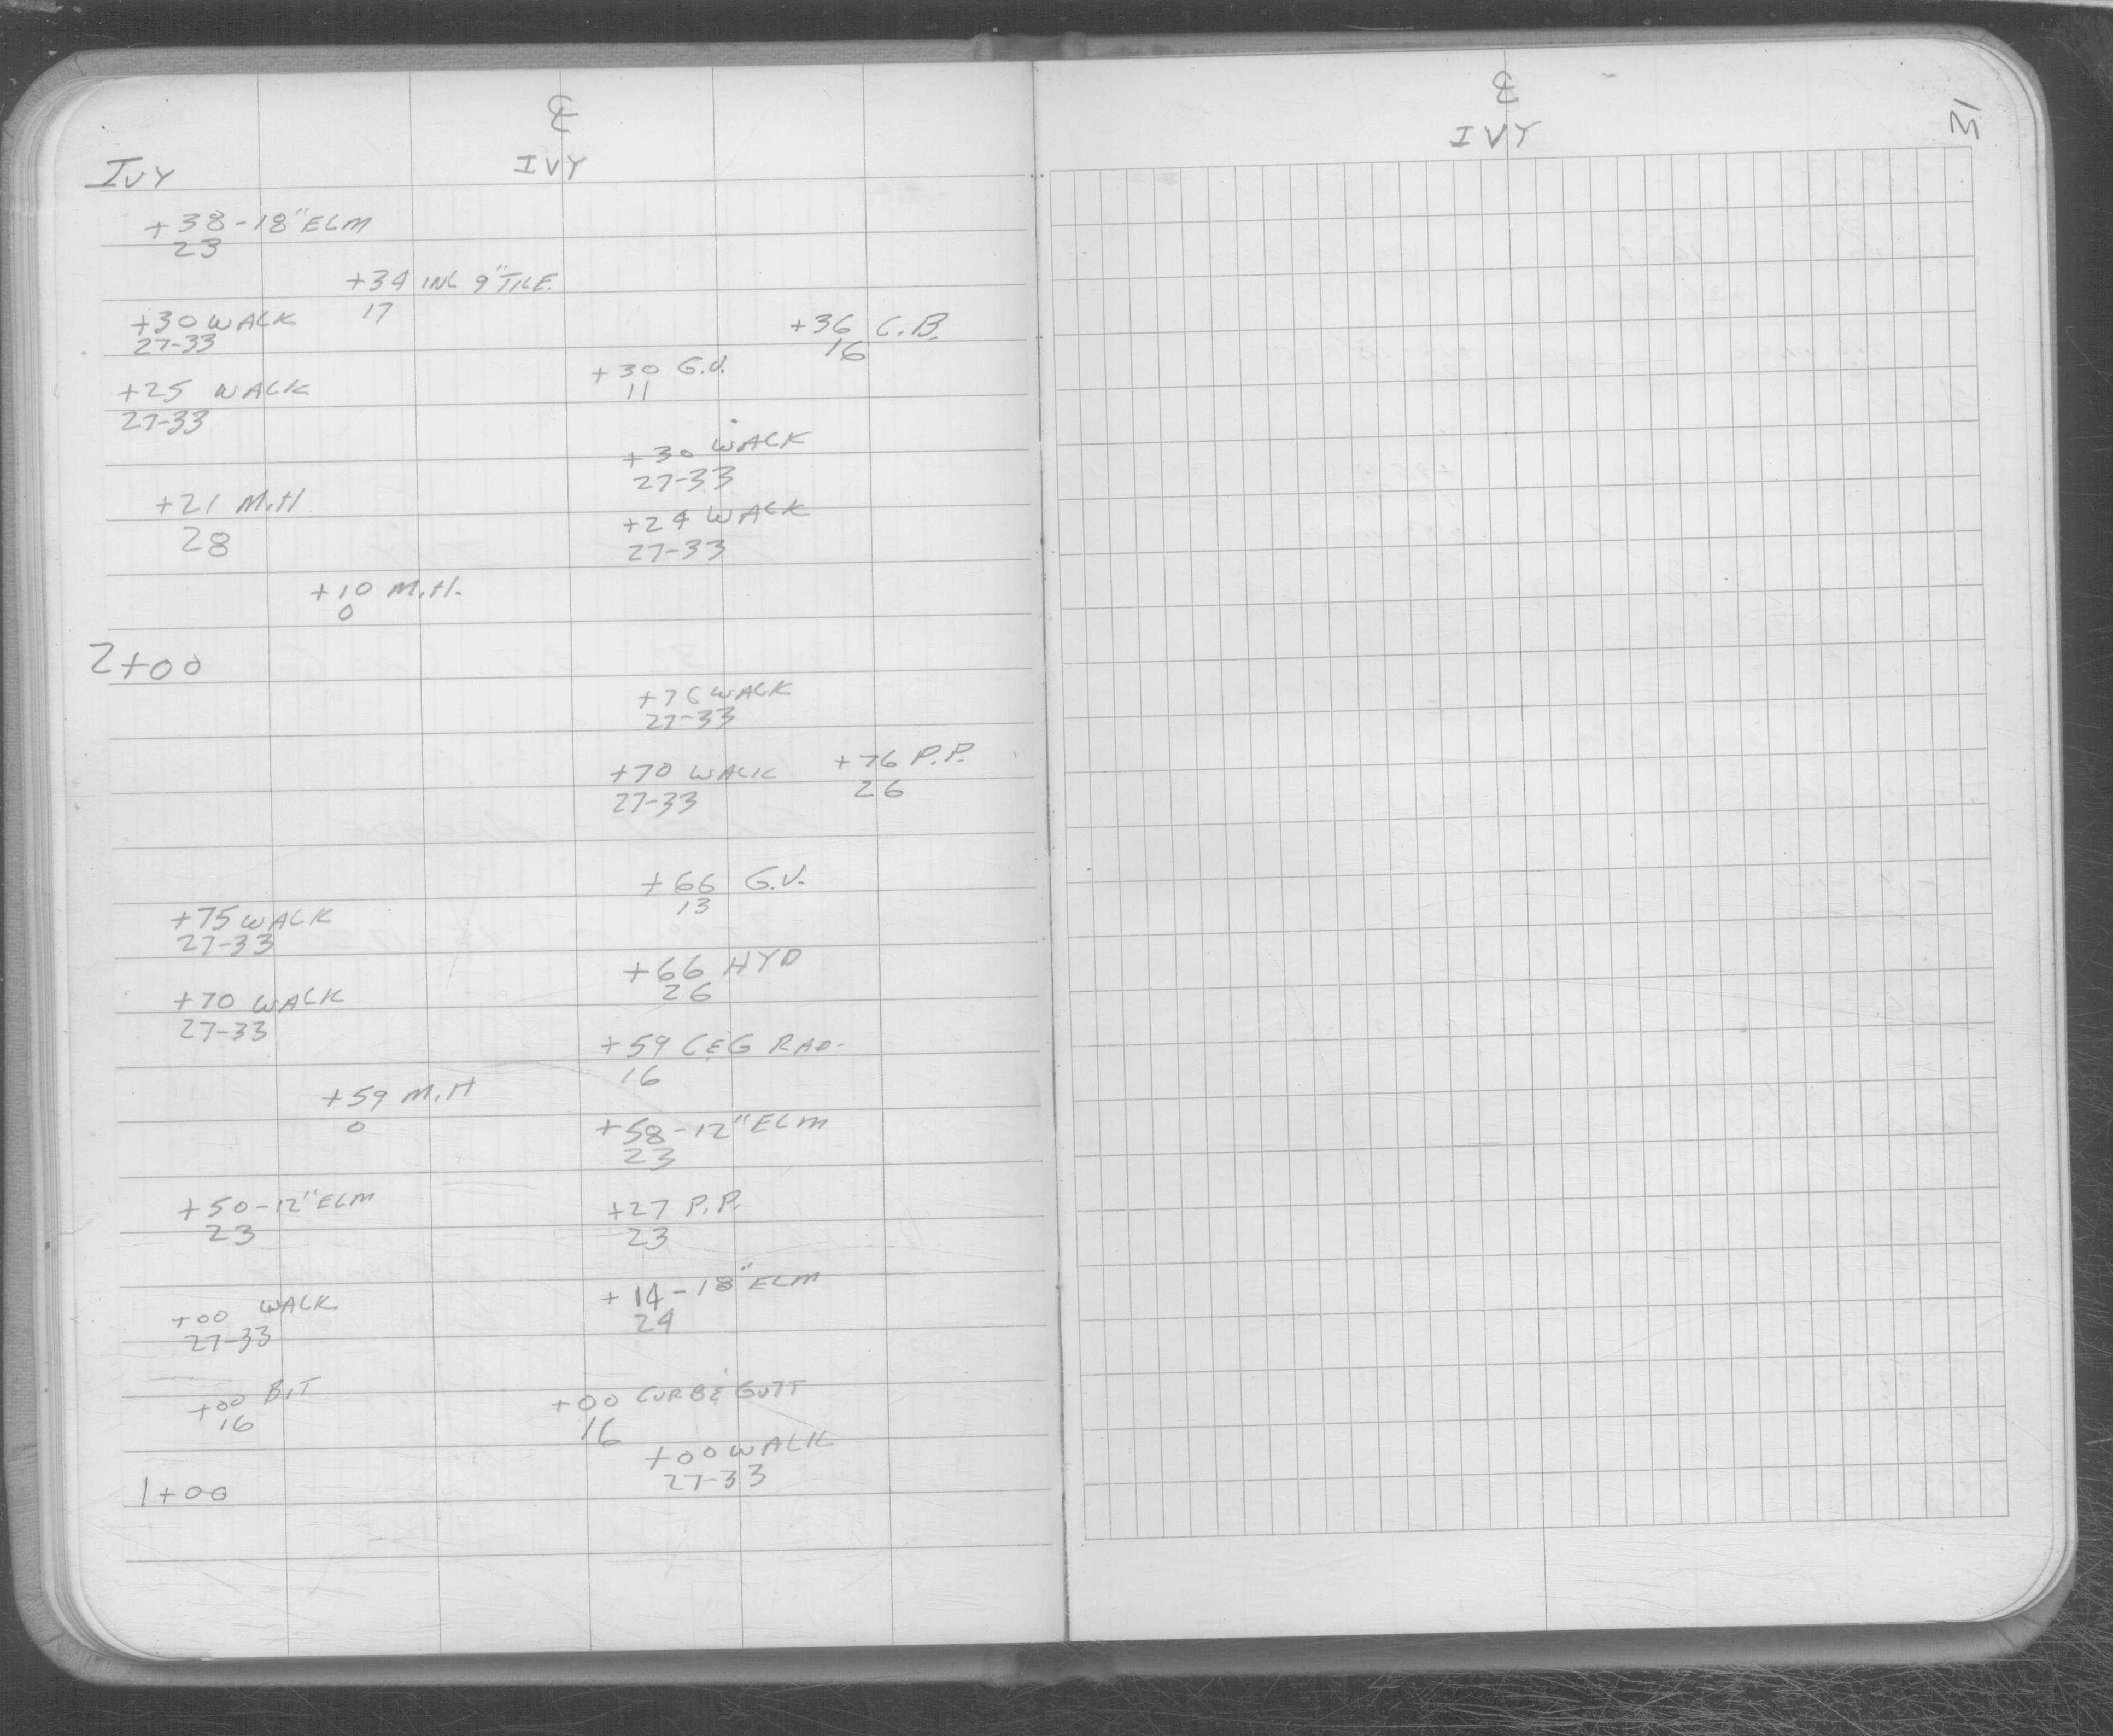 ℄
IVY
IVY
+38-18"ELM
23
+34 INL 9"TILE
17
+30 WALK
27-33
+36 C.B.
16
+30 G.V.
11
+25 WALK
27-33
+30 WALK
27-33
+21 M.H
28
+24 WALK
27-33
+10 M.H.
0
2+00
+76 WALK
27-33
+70 WALK
27-33
+76 P.P.
26
+66 G.V.
13
+75 WALK
27-33
+66 HYD
26
+70 WALK
27-33
+59 C&G RAD.
16
+59 M.H
0
+58-12"ELM
23
+50-12"ELM
23
+27 P.P.
23
+14-18"ELM
24
+00 WALK
27-33
+00 BIT
16
+00 CURB & GUTT
16
+00 WALK
27-33
1+00
℄
IVY